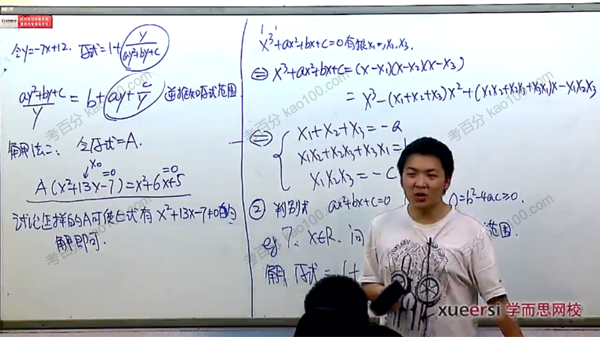 令y=-7x+12. 原式=1+y/(ay²+by+c)
(ay²+by+c)/y = b+ay+c/y 逆推知原式范围
解法二: 令原式=A.
x₀
A(x²+13x-7)=x²+6x+5
=0 =0
讨论怎样的A可使上式有 x²+13x-7≠0的
解即可.
x³+ax²+bx+c=0有根x₁,x₂,x₃
⇔ x³+ax²+bx+c=(x-x₁)(x-x₂)(x-x₃)
=x³-(x₁+x₂+x₃)x²+(x₁x₂+x₂x₃+x₃x₁)x-x₁x₂x₃
⇔ { x₁+x₂+x₃=-a
x₁x₂+x₂x₃+x₃x₁=
x₁x₂x₃=-c
② 判别式 ax²+bx+c=0 )=b²-4ac≥0.
eg7. x∈R, 问 范围.
解 原式=1+
考百分 kao100.com
xueersi 学而思网校